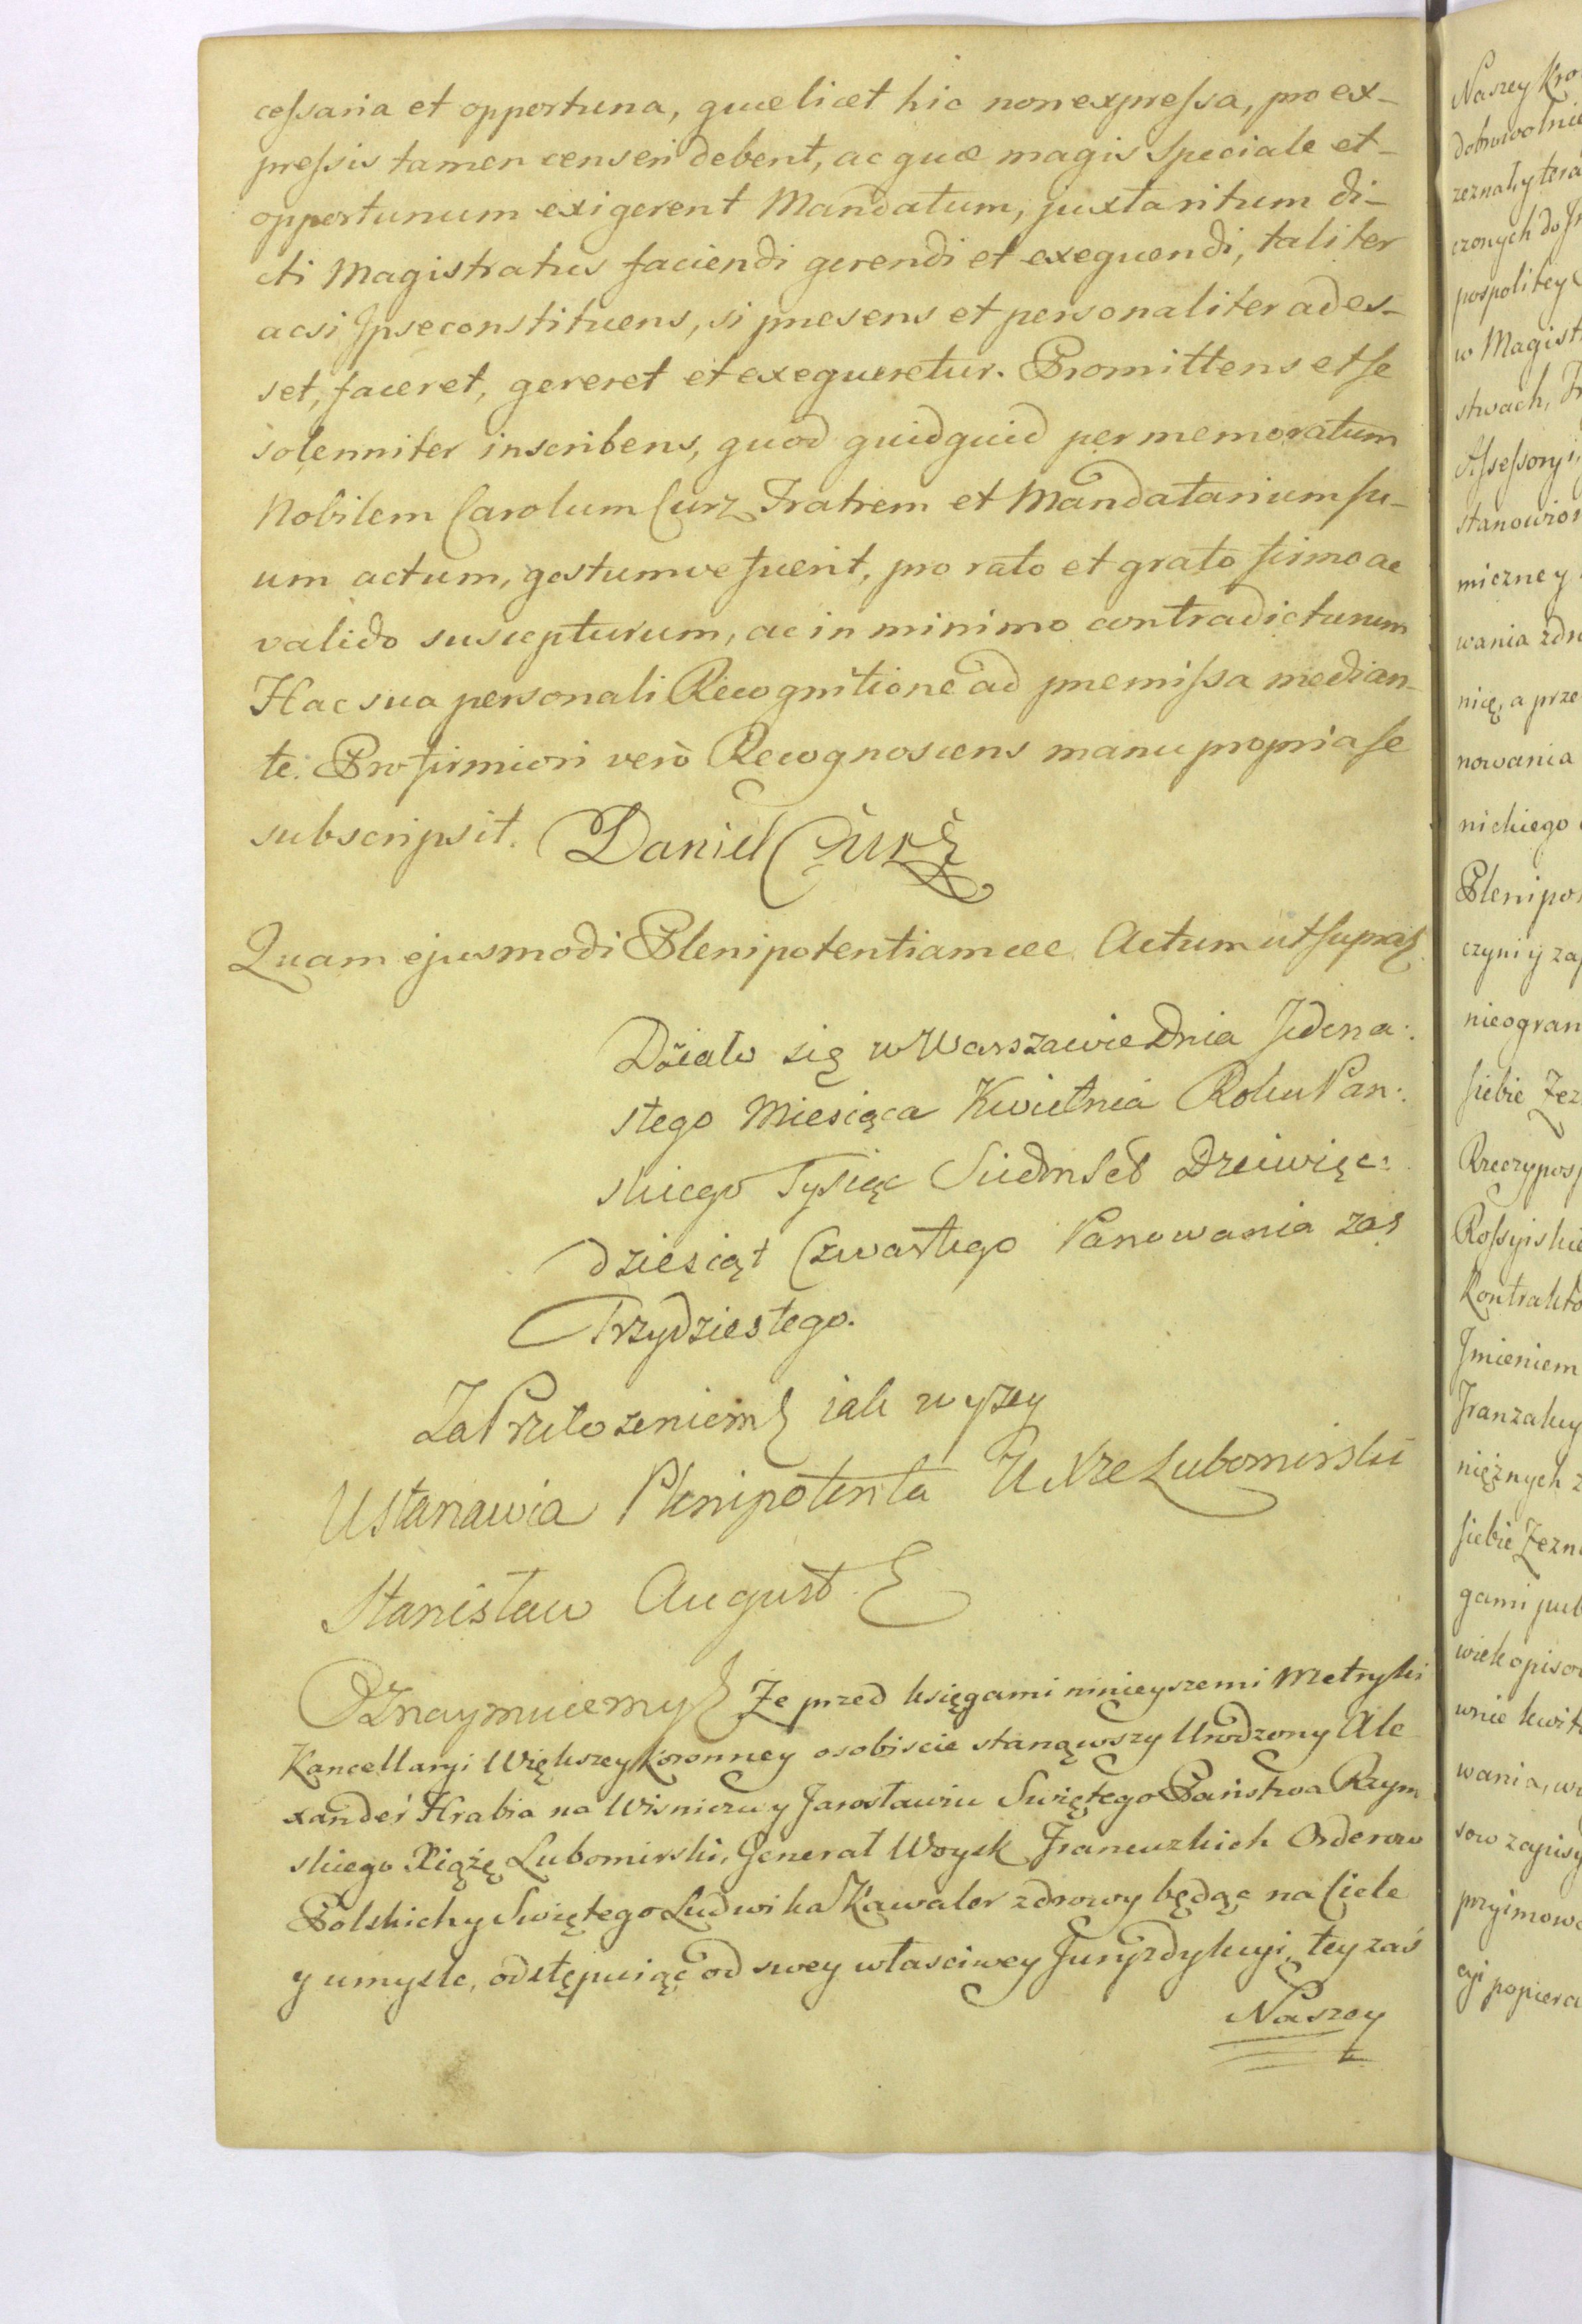 cessaria et opportuna, quæ licet hic non expressa, pro ex-
pressis tamen censeri debent, ac quæ magis Speciale et
opportunum exigerent Mandatum, juxta ritum di-
cti Magistratus faciendi gerendi et exequendi, taliter
acsi Ipse constituens, si præsens et personaliter ades-
set, faceret, gereret et exequeretur. Promittens et se
solenniter inscribens, quod quidquid per memoratum
Nobilem Carolum Curz Fratrem et Mandatarium su-
um actum, gestumve fuerit, pro rato et grato firmo ac
valido suscepturum, ac in minimo contradicturum
Hac sua personali Recognitione ad præmissa median-
te. Pro firmiori verò Recognoscens manu propria se
subscripsit. Daniel Curz
Quam ejusmodi Plenipotentiam Actum ut supra
Działo się w Warszawie Dnia Jedena:
stego Miesiąca Kwietnia Roku Pan:
skiego Tysiąc Siedmset Dziewięc:
dziesiąt Czwartego Panowania zas
Trzydziestego.
Za Przełożeniem jak wyzey
Ustanawia Plenipotenta U Xże Lubomirski
Stanisław August
Oznaymuiemy Że przed księgami ninieyszemi Metryki
Kancellaryi Większey Koronney osobiscie stanąwszy Urodzony Ale
xander Hrabia na Wisniczu y Jarosławiu Swiętego Państwa Rzym
skiego Xiąże Lubomirski, Generał Woysk Francuzkich Orderow
Polskich y Swiętego Ludwika Kawaler zdrowy będąc na Ciele
y umysle, odstępuiąc od swey własciwey Juryzdykcyi, tey zaś
Naszey
Naszey Kro
dobrowolnie
zeznał, y tera
czonych do
pospolitey
w Magist
stwach,
Assessoryi,
stanowion
miczney
wania zdr
nicę, a prze
nowania
nickiego
Plenipo
czyni y zap
nieogran
siebie Zez
Rzeczyposp
Rossyiskie
Kontrakto
Jmieniem
Tranzakcy
nięznych z
siebie Zezn
gami pub
wiek opisow
wnie kwit
wania, w
sow zapisy
przyimowa
cyi popiera